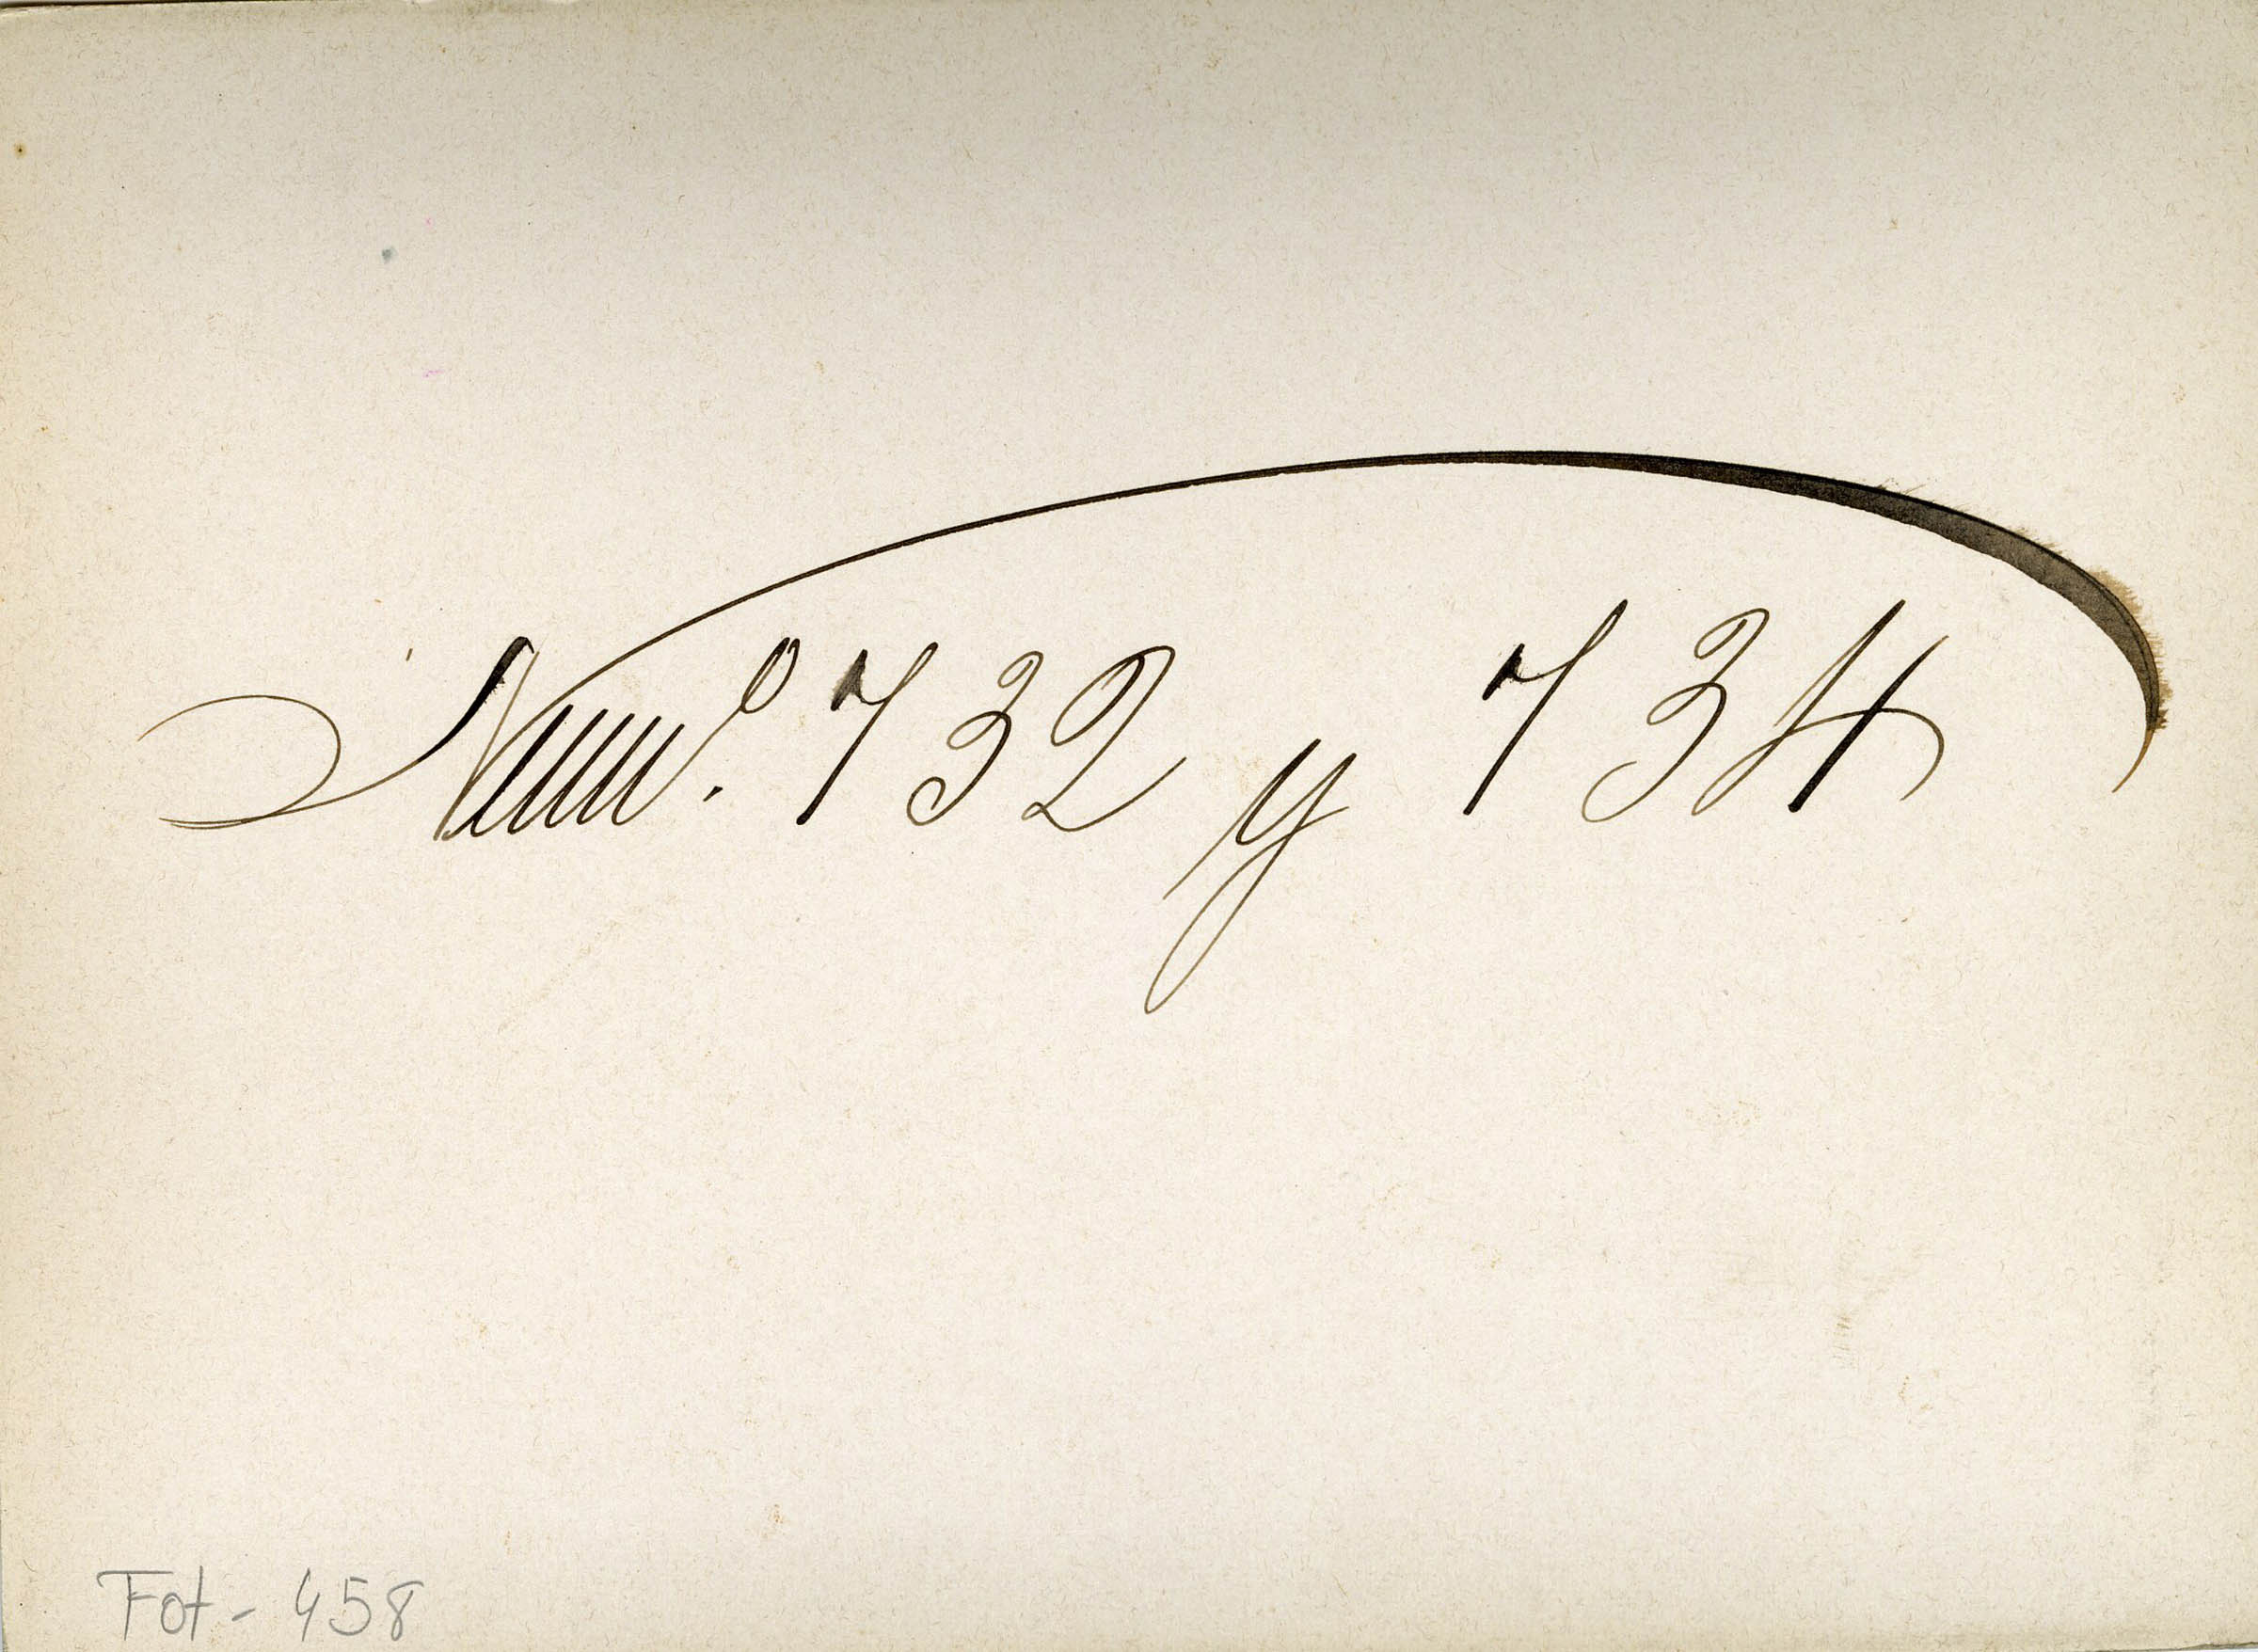 Num.º 732 y 734
Fot - 458